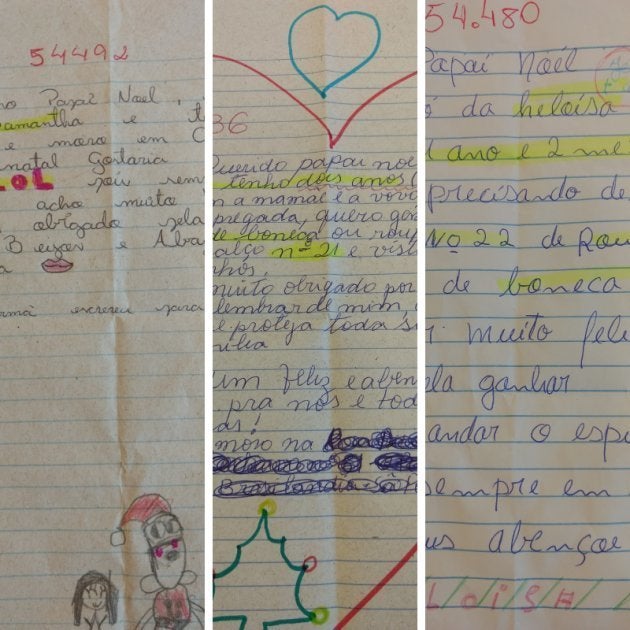 54492
no Papai Noel,
Samantha e t
e moro em C
natal Gostaria
LOL pois sem
acho muito
obrigado pela
Beijos e Abra
a
rmã escreveu para
36
Querido papai noe
tenho dois anos (
m a mamãe e a vovó
pregada, quero gan
de boneca ou roup
calço nº 21 e visto
nhos.
muito obrigado por
lembrar de mim,
e proteja toda su
mília
um feliz e aben
pra nós e tod
ós!
moro na
Brasilandia
54.480
Papai Noél
ó da heloísa
1 ano e 2 me
precisando de
Nº 22 de Rou
de boneca
r muito feli
ela ganhar
andar o espe
sempre em
us abençoe
L/O/I/S/A/